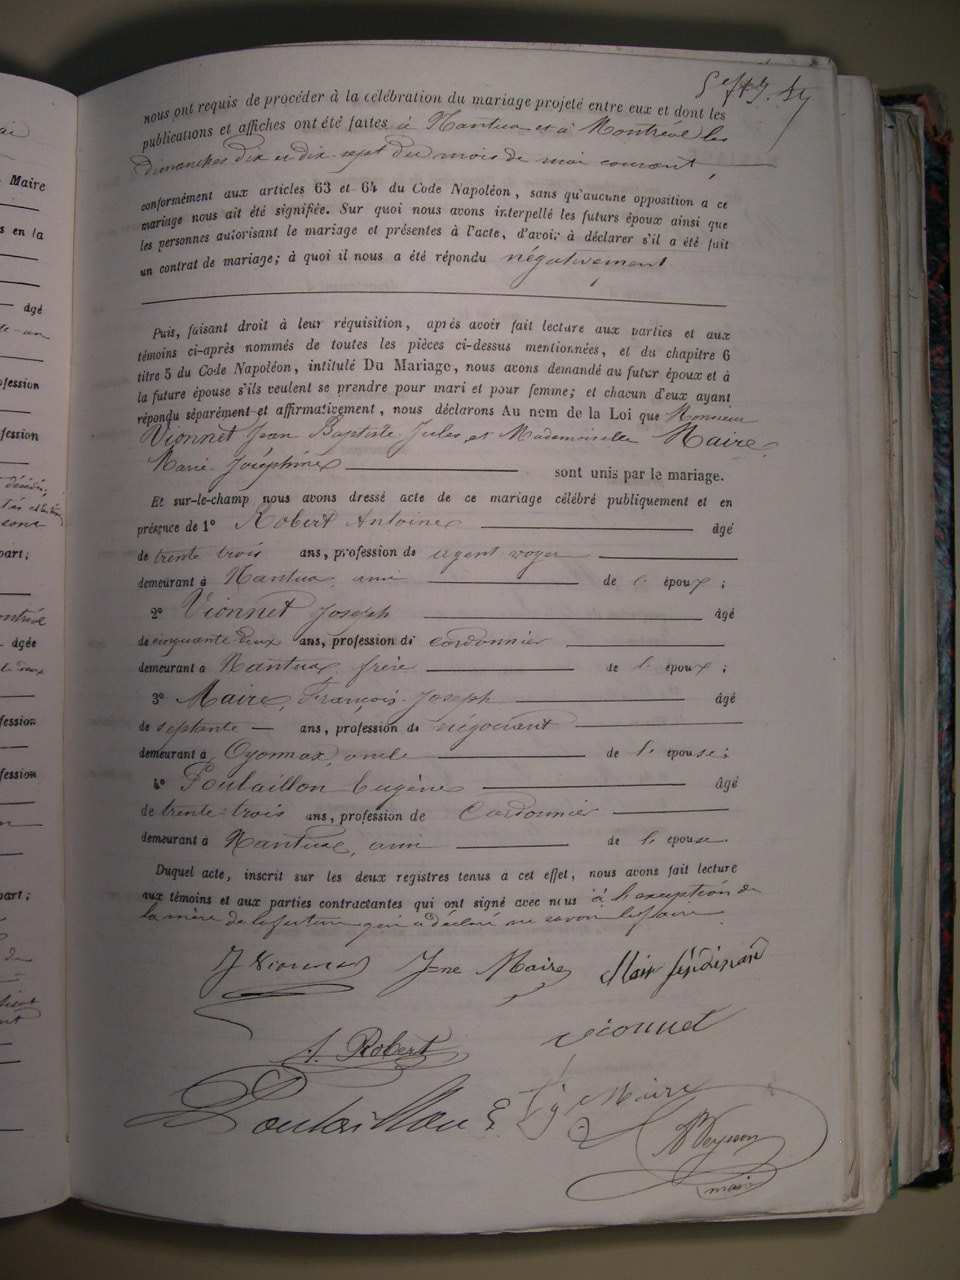 nous ont requis de procéder à la célébration du mariage projeté entre eux et dont les
publications et affiches ont été faites à Nantua et à Montréal les
dimanches dix et dix-sept du mois de mai courant,
conformément aux articles 63 et 64 du Code Napoléon, sans qu'aucune opposition a ce
mariage nous ait été signifiée. Sur quoi nous avons interpellé les futurs époux ainsi que
les personnes autorisant le mariage et présentes à l'acte, d'avoir à déclarer s'il a été fait
un contrat de mariage; à quoi il nous a été répondu négativement
Puis, faisant droit à leur réquisition, après avoir fait lecture aux parties et aux
témoins ci-après nommés de toutes les pièces ci-dessus mentionnées, et du chapitre 6
titre 5 du Code Napoléon, intitulé Du Mariage, nous avons demandé au futur époux et à
la future épouse s'ils veulent se prendre pour mari et pour femme; et chacun d'eux ayant
répondu séparément et affirmativement, nous déclarons Au nom de la Loi que Monsieur
Vionnet Jean Baptiste Jules et Mademoiselle Maire
Marie Joséphine sont unis par le mariage.
Et sur-le-champ nous avons dressé acte de ce mariage célébré publiquement et en
présence de 1° Robert Antoine âgé
de trente trois ans, profession de agent voyer
demeurant à Nantua, ami de l' époux ;
2° Vionnet Joseph âgé
de cinquante deux ans, profession de cordonnier
demeurant à Nantua frère de l' époux ;
3° Maire, François Joseph âgé
de septante ans, profession de négociant
demeurant à Oyonnax, oncle de l' épouse ;
4° Poulaillon Eugène âgé
de trente-trois ans, profession de Cordonnier
demeurant à Nantua, ami de l' épouse
Duquel acte, inscrit sur les deux registres tenus à cet effet, nous avons fait lecture
aux témoins et aux parties contractantes qui ont signé avec nous à l'exception de
la mère de la future qui a déclaré ne savoir le faire
J Vionnet Jne Maire
A. Robert vionnet
Poulaillon E Maire
maire
Maire
âgé
profession